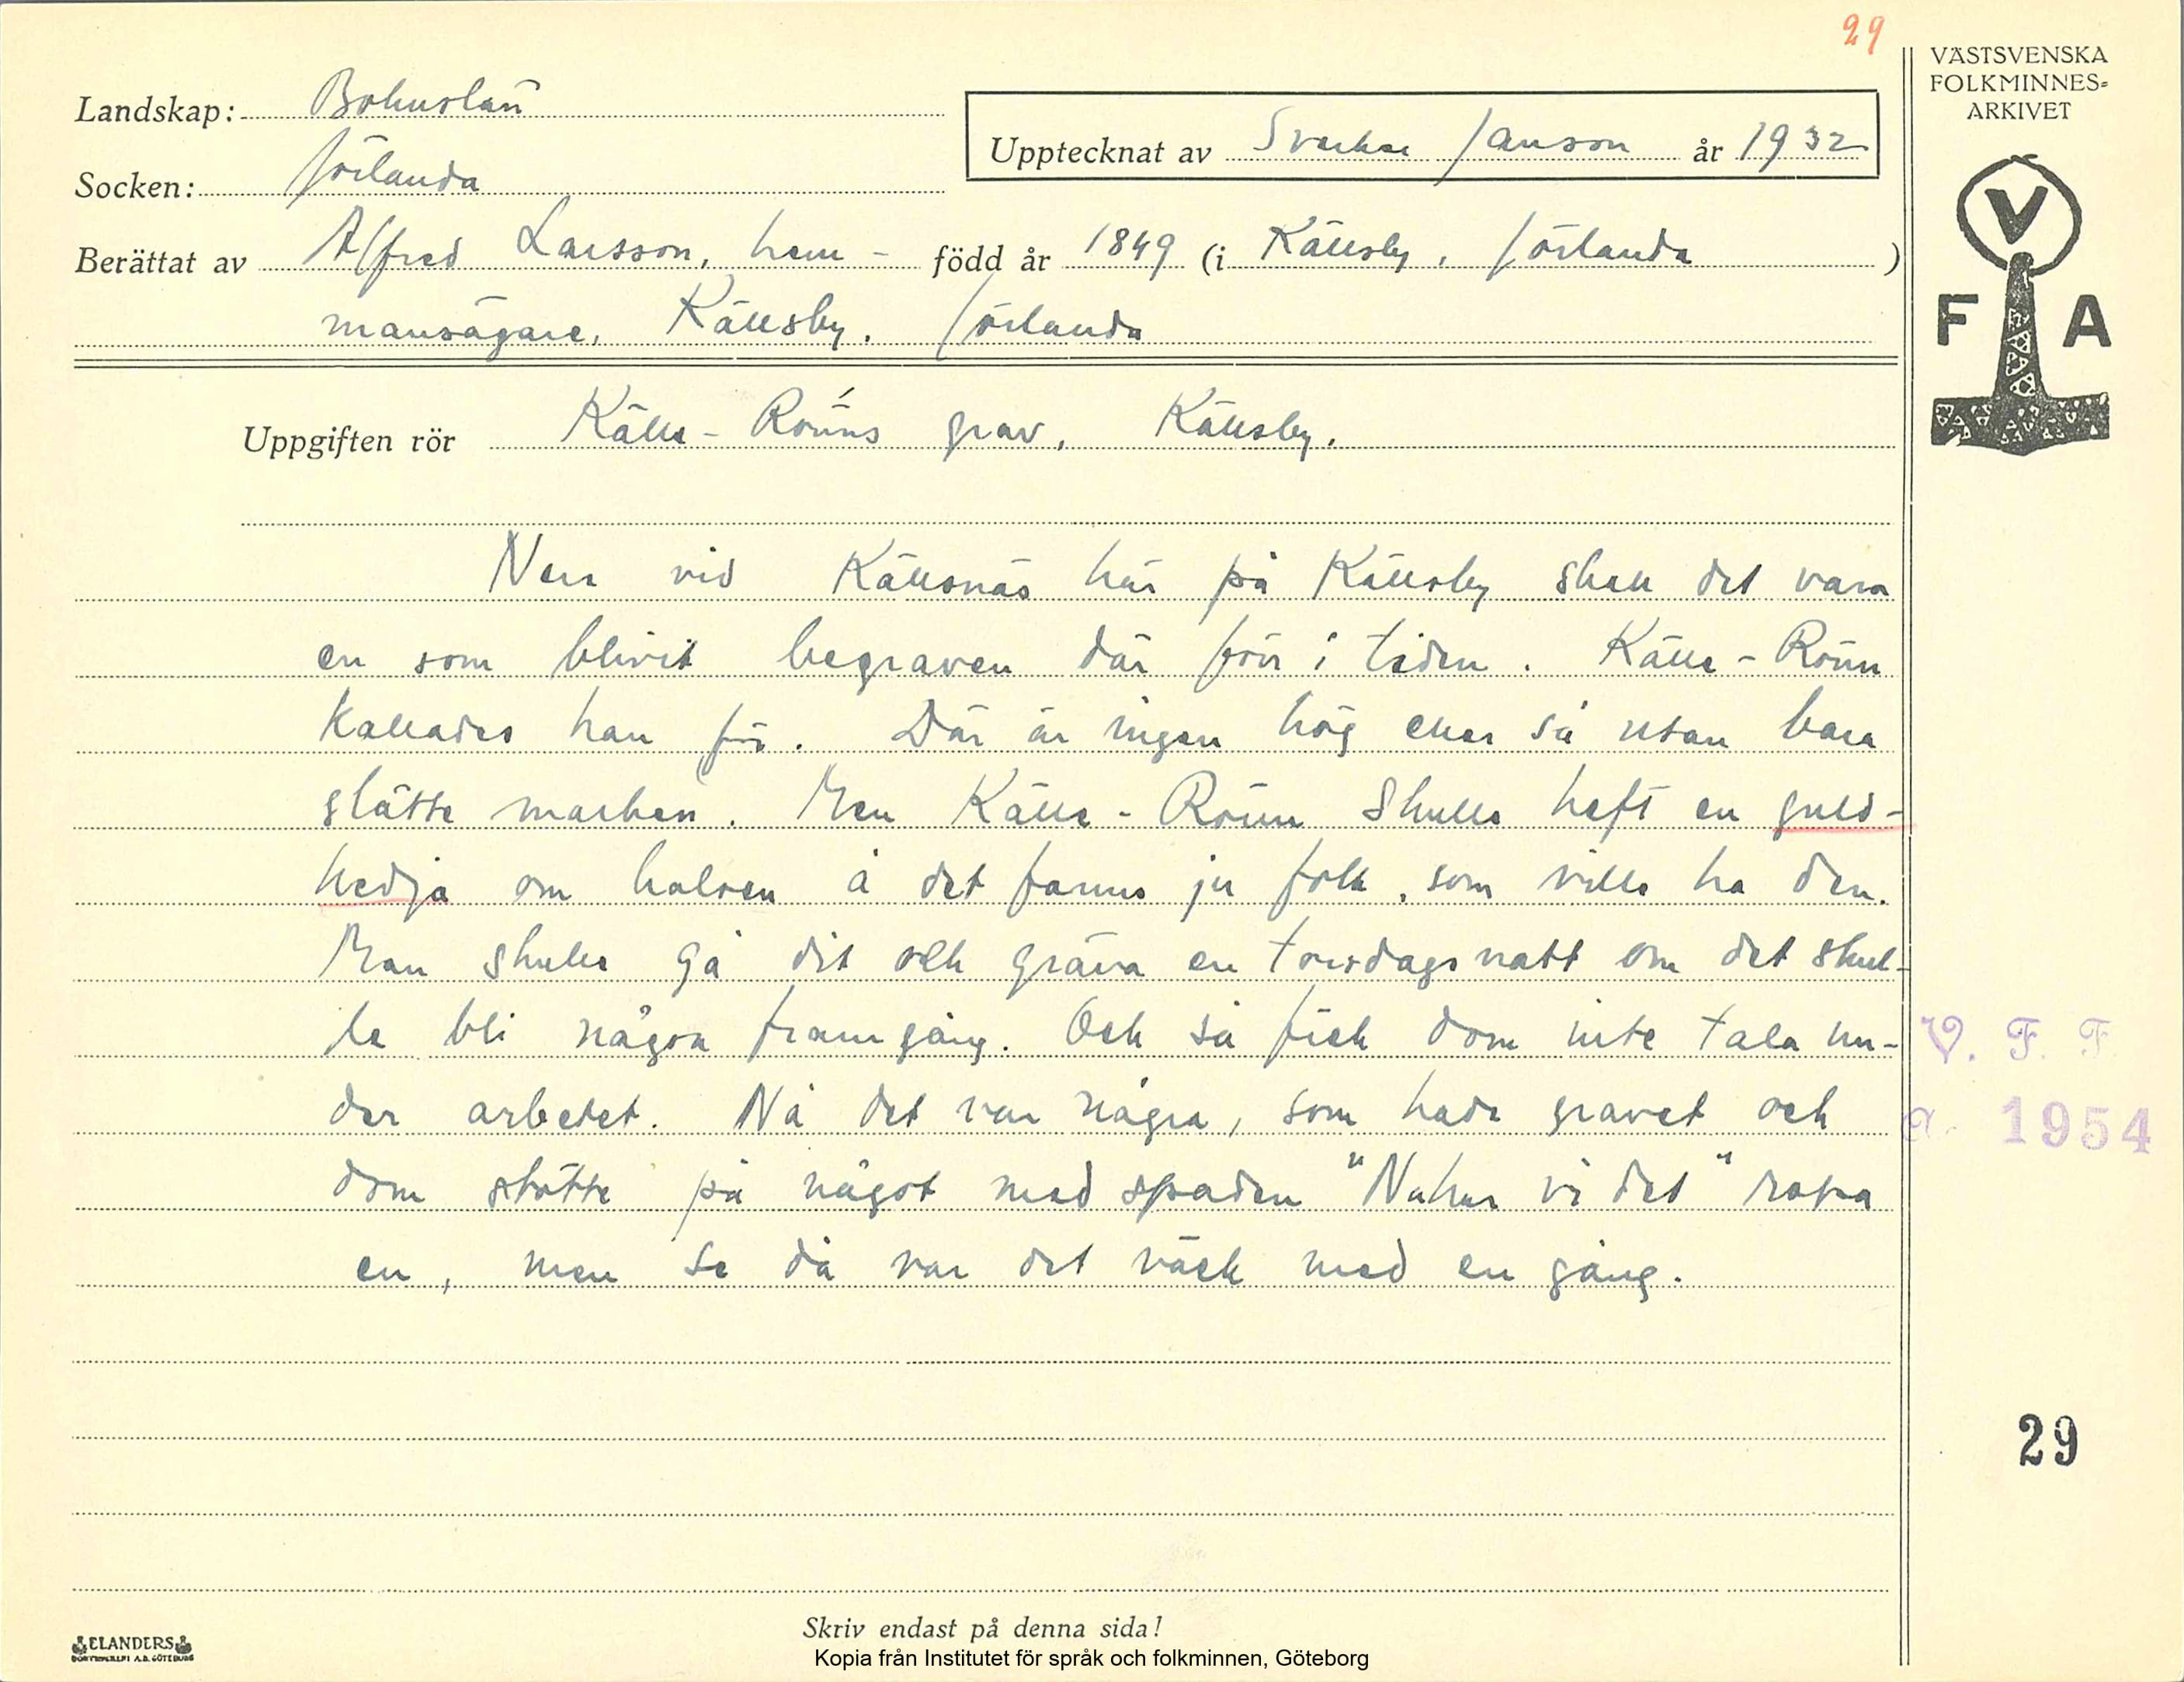 29
VÄSTSVENSKA
FOLKMINNES-
ARKIVET
Landskap: Bohuslän
Upptecknat av Sverker Janson år 1932
Socken: Jörlanda
Berättat av Alfred Larsson, hem- född år 1849 (i Källsby, Jörlanda )
mansägare, Källsby, Jörlanda
V
F A
Uppgiften rör Källe-Röuns grav, Källsby.
Nere vid Källsnäs här på Källsby skall det vara
en som blivit begraven där förr i tiden. Källe-Röun
kallades han för. Där är ingen hög eller så utan bara
slätte marken. Men Källe-Röun skulle haft en guld-
kedja om halsen å det fanns ju folk, som ville ha den.
Man skulle gå dit och gräva en torsdagsnatt om det skul-
le bli någon framgång. Och så fick dom inte tala un-
der arbetet. Nå det var några, som hade gravet och
dom stötte på något med spaden "Nu har vi det" ropa
en, men se då var det väck med en gång.
V. F. F.
a. 1954
29
Skriv endast på denna sida!
ELANDERS
BOKTRYCKERI A.B. GÖTEBORG
Kopia från Institutet för språk och folkminnen, Göteborg